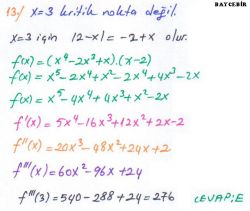 BAYCEBİR
13-) x=3 kritik nokta değil.
x=3 için |2-x|=-2+x olur.
f(x)=(x⁴-2x³+x).(x-2)
f(x)=x⁵-2x⁴+x²-2x⁴+4x³-2x
f(x)=x⁵-4x⁴+4x³+x²-2x
f'(x)=5x⁴-16x³+12x²+2x-2
f''(x)=20x³-48x²+24x+2
f'''(x)=60x²-96x+24
f'''(3)=540-288+24=276 CEVAP:E